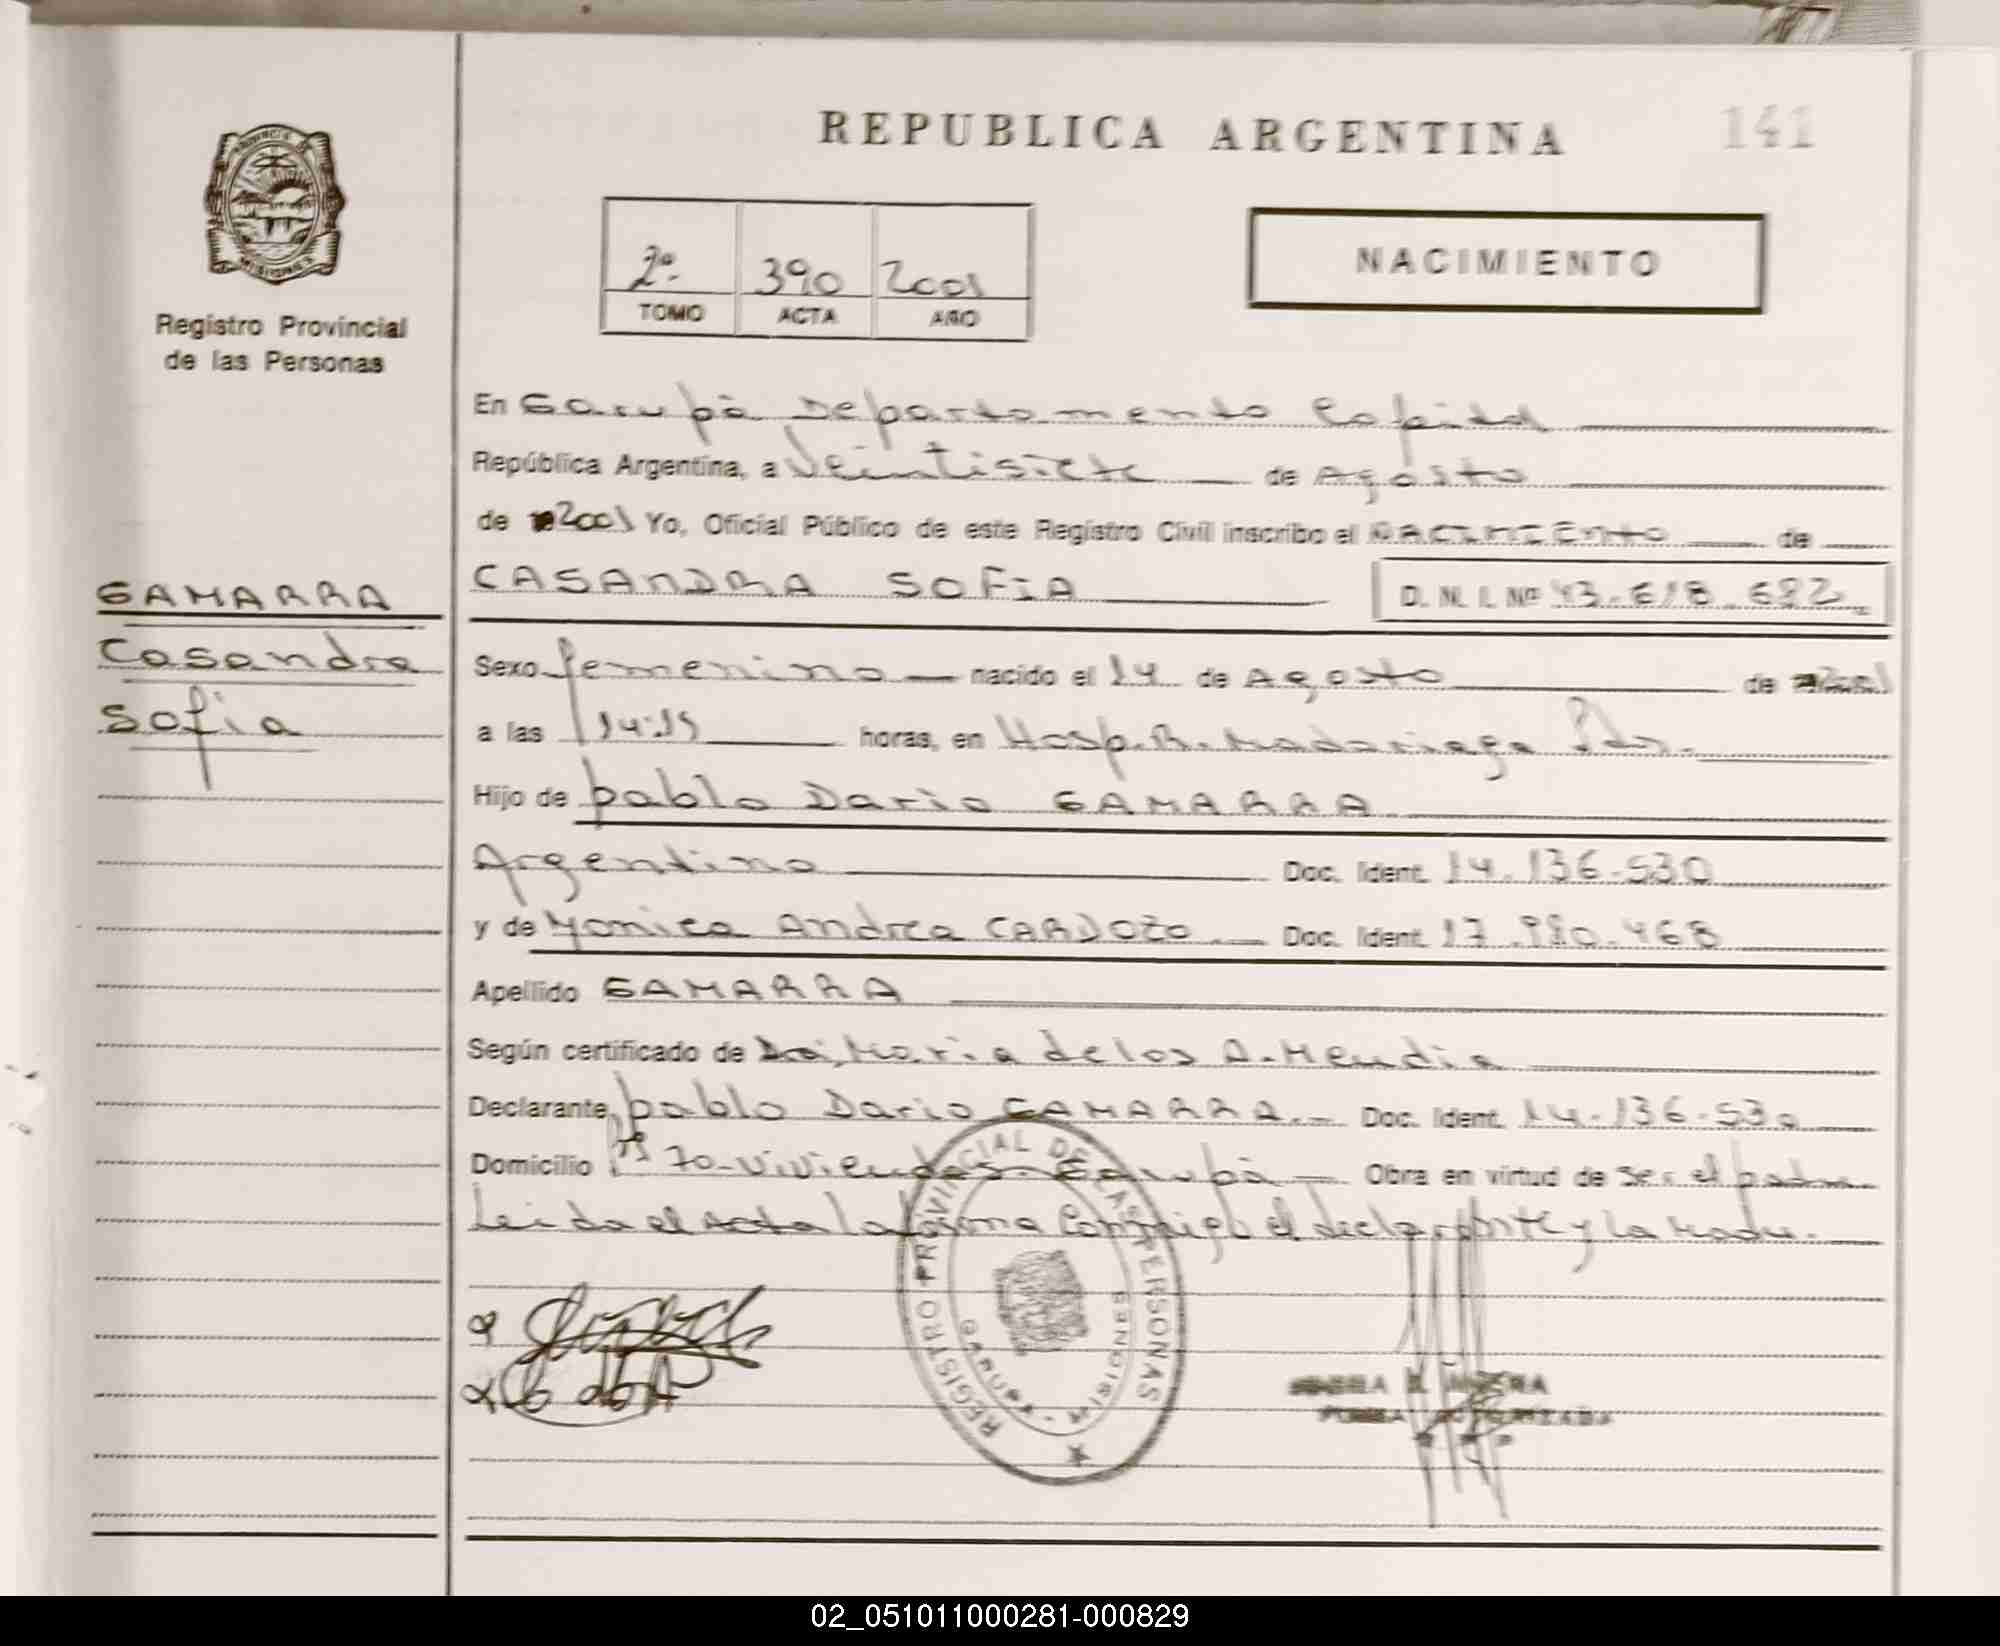 REPUBLICA ARGENTINA
141
PROVINCIA DE
MISIONES
Registro Provincial
de las Personas
2º. 390 2001
TOMO ACTA AÑO
NACIMIENTO
En Garupà Departamento Capital
República Argentina, a Veintisiete de Agosto
de 2001 Yo, Oficial Público de este Registro Civil inscribo el NACIMIENTO de
GAMARRA
Casandra
Sofia
CASANDRA SOFIA
D. N. I. Nº 43.618.682
Sexo femenino nacido el 14 de Agosto de 2001
a las 14:15 horas, en Hosp. R. Madariaga Pdas.
Hijo de pablo Dario GAMARRA
Argentino Doc. Ident. 14.136.530
y de Monica Andrea CARDOZO Doc. Ident. 17.980.468
Apellido GAMARRA
Según certificado de Maria de los A. Mendia
Declarante pablo Dario GAMARRA.- Doc. Ident. 14.136.530
Domicilio 70-Viviendas- Garupà Obra en virtud de ser el padre
Leida el Acta la firma Conmigo el declarante y la Madre.
REGISTRO PROVINCIAL DE LAS PERSONAS
GARUPA - MISIONES
FIRMA AUTORIZADA
02_051011000281-000829